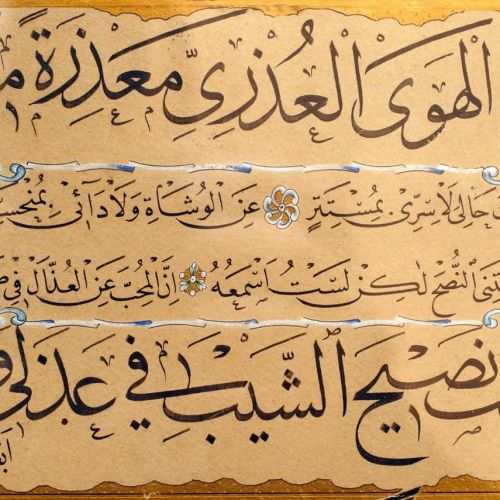 الْهَوَى الْعُذْرِيِّ مَعْذِرَةً
حَالِىَ لَا سِرِّى بِمُسْتَتِرٍ عَنِ الْوُشَاةِ وَلَا دَائِى
النُّصْحَ لٰكِنْ لَسْتُ اَسْمَعُهُ اِنَّ الْمُحِبَّ عَنِ الْعُذَّالِ فِى
نَصِيحَ الشَّيْبِ فِي عَذَلِى